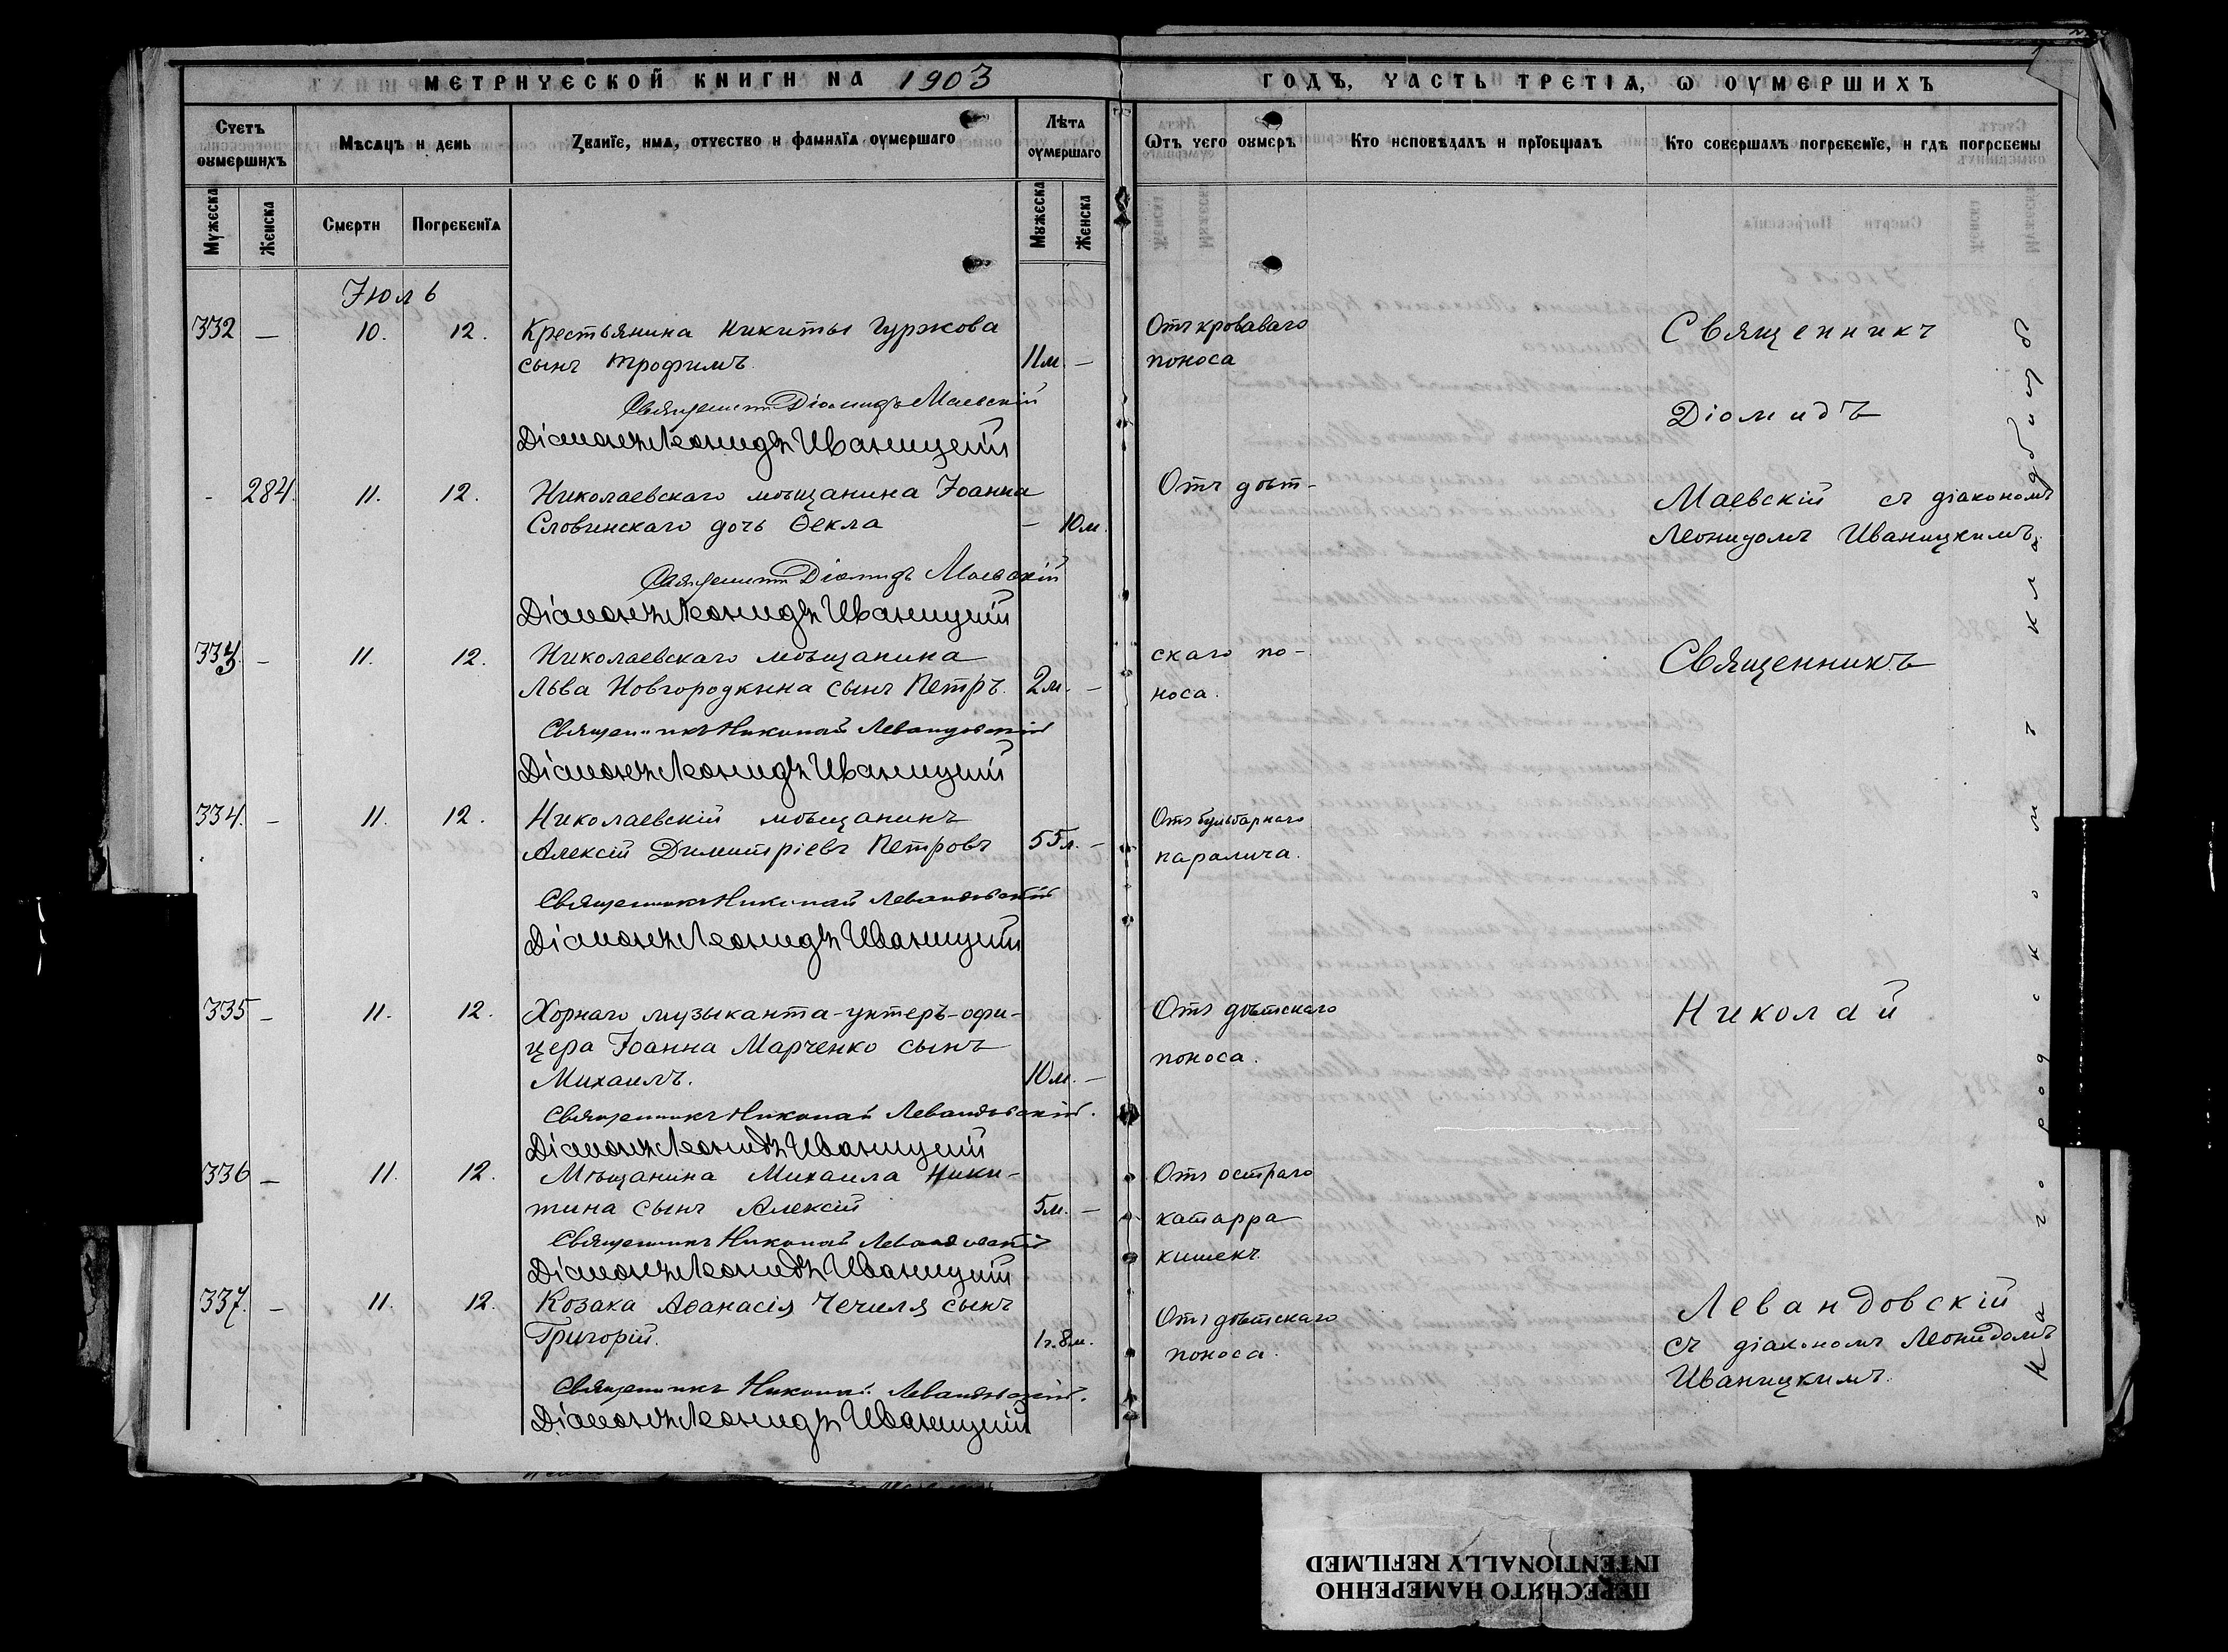 МЕТРИЧЕСКОЙ КНИГИ НА 1903
ГОДЪ, ЧАСТЬ ТРЕТІѦ, Ѡ ОУМЕРШИХЪ
Счетъ оумершихъ
Мѣсѧцъ и день
Званїе, имѧ, отчество и фамилїѧ оумершаго
Лѣта оумершаго
Ѿтъ чего оумеръ
Кто исповѣдалъ и прїобщалъ
Кто совершалъ погребенїе, и гдѣ погребены
Мужеска
Женска
Смерти
Погребенїѧ
Мужеска
Женска
Іюль
332 — 10. 12. Крестьянина Никиты Гуржова
сынъ Трофимъ. 11м. —
Священникъ Діомидъ Маевскій
Діаконъ Леонидъ Иваницкій
Отъ кроваваго
поноса
Священникъ
Діомидъ
- 284. 11. 12. Николаевскаго мѣщанина Іоанна
Словинскаго дочь Ѳекла — 10м.
Священникъ Діомидъ Маевскій
Діаконъ Леонидъ Иваницкій
Отъ дѣт-
Маевскій съ діакономъ
Леонидомъ Иваницкимъ.
333. — 11. 12. Николаевскаго мѣщанина
Льва Новгородкина сынъ Петръ. 2м. —
Священникъ Николай Левандовскій
Діаконъ Леонидъ Иваницкій
скаго по-
носа.
Священникъ
334. — 11. 12. Николаевскій мѣщанинъ
Алексій Димитріевъ Петровъ 55л. —
Священникъ Николай Левандовскій
Діаконъ Леонидъ Иваницкій
Отъ бульбарнаго
паралича.
335 — 11. 12. Хорнаго музыканта-унтеръ-офи-
цера Іоанна Марченко сынъ
Михаилъ. 10м. —
Священникъ Николай Левандовскій.
Діаконъ Леонидъ Иваницкій
Отъ дѣтскаго
поноса.
Николай
336 — 11. 12. Мѣщанина Михаила Ники-
тина сынъ Алексій 5м. —
Священникъ Николай Левандовскій
Діаконъ Леонидъ Иваницкій
Отъ остраго
катарра
кишекъ.
337. — 11. 12. Козака Аѳанасія Чечиля сынъ
Григорій. 1г.8м.
Священникъ Николай Левандовскій.
Діаконъ Леонидъ Иваницкій
Отъ дѣтскаго
поноса.
Левандовскій
съ діакономъ Леонидомъ
Иваницкимъ.
На городскомъ кладбищѣ
ПЕРЕСНЯТО НАМЕРЕННО
INTENTIONALLY REFILMED